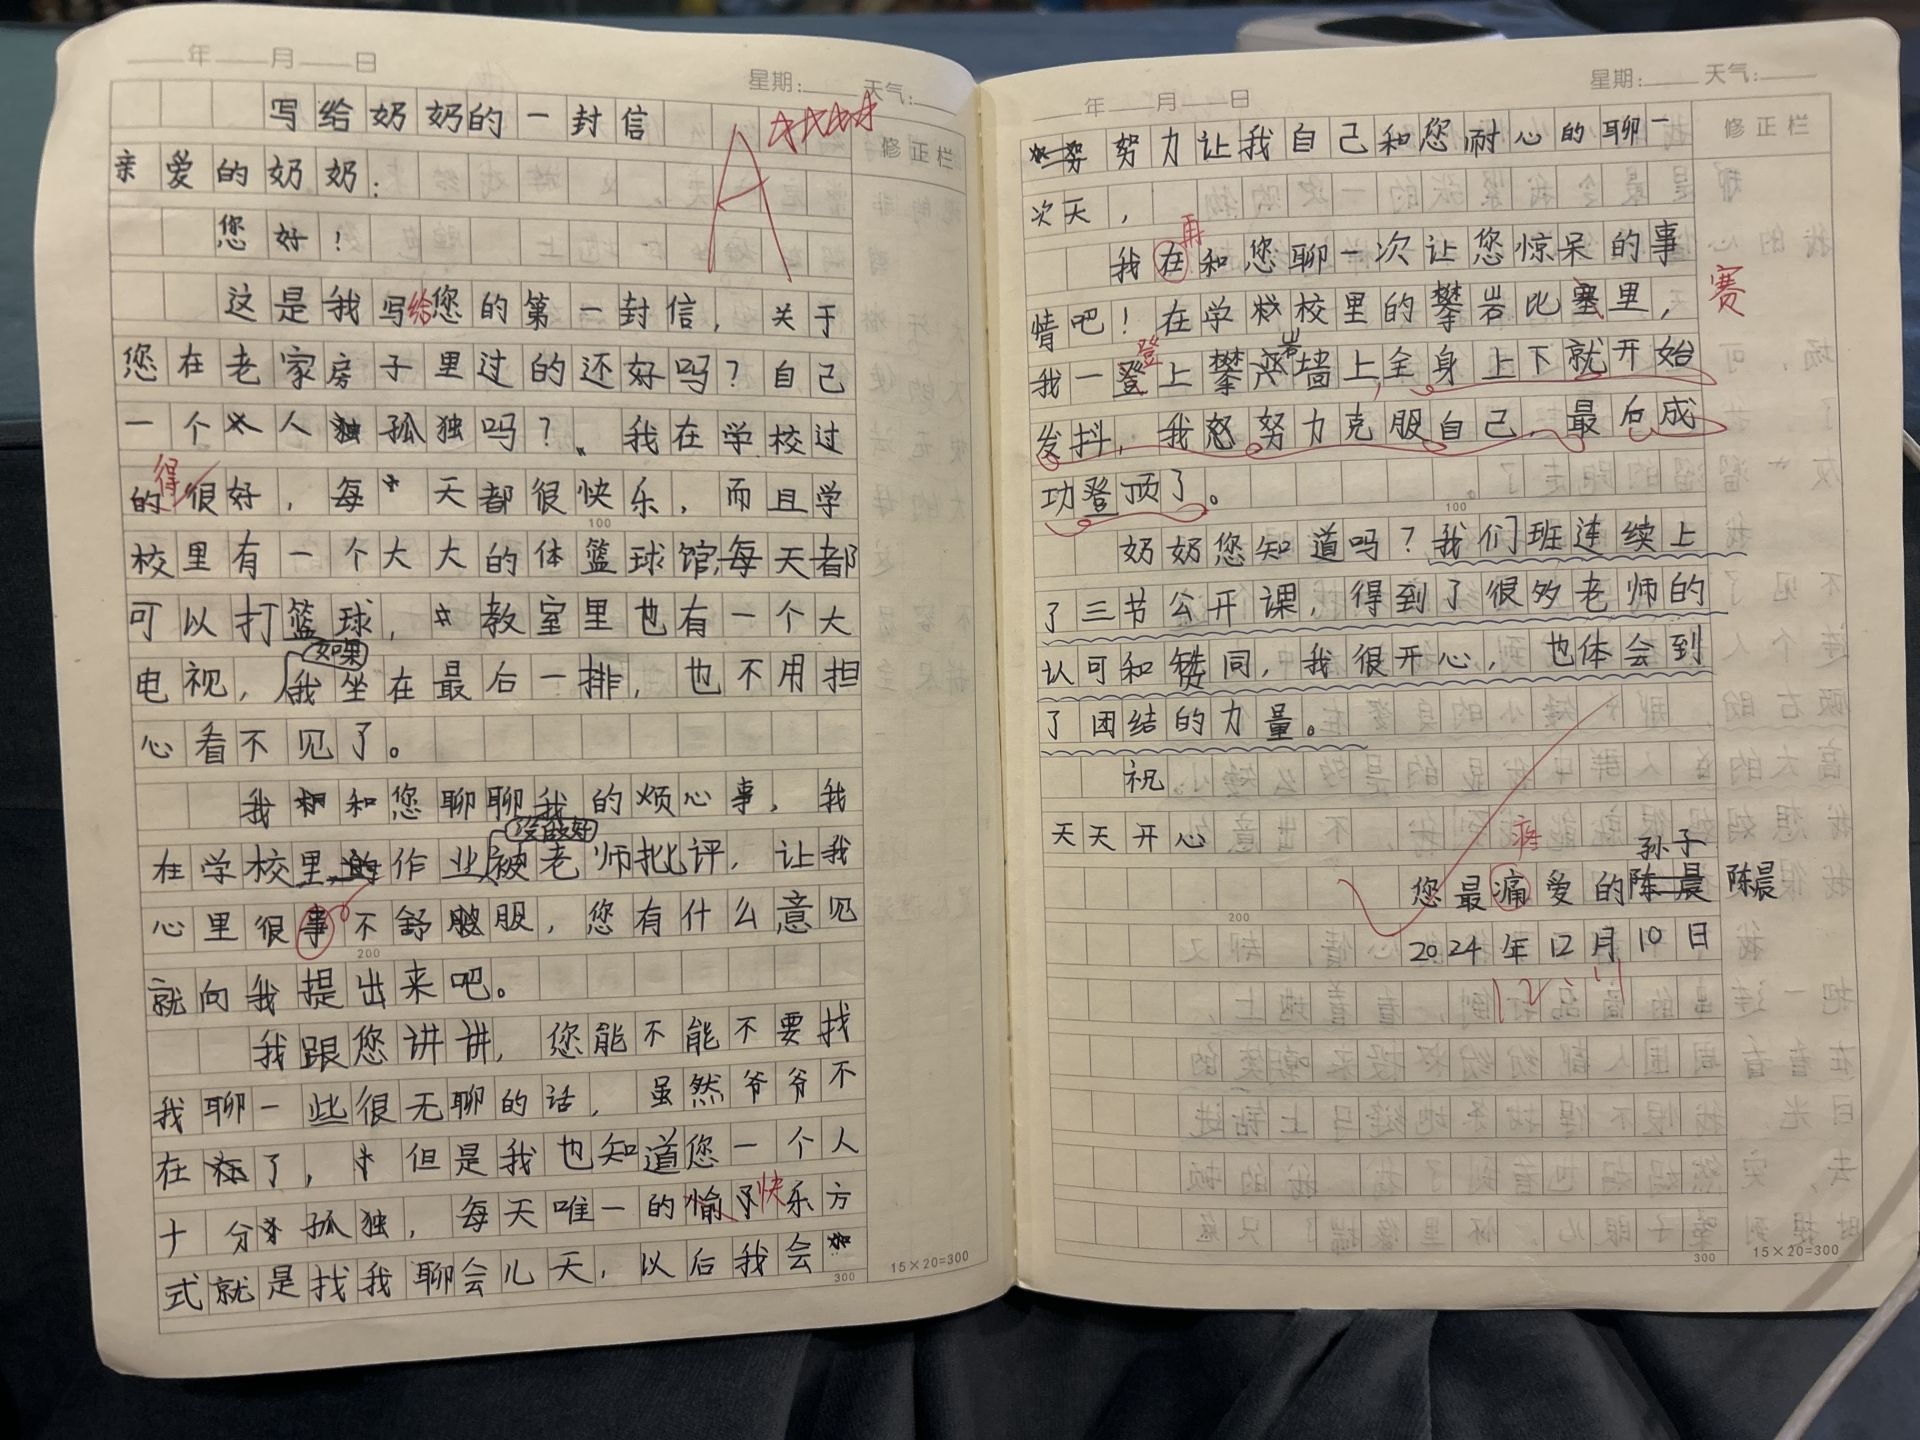 年 月 日
星期: 天气:
写给奶奶的一封信
A
修正栏
亲爱的奶奶:
您好!
这是我写给您的第一封信,关于
您在老家房子里过的还好吗?自己
一个人孤独吗?我在学校过
的得很好,每天都很快乐,而且学
校里有一个大大的体篮球馆,每天都
可以打篮球,教室里也有一个大
如果
电视,我坐在最后一排,也不用担
心看不见了。
我和您聊聊我的烦心事,我
没做好
在学校里作业被老师批评,让我
心里很事不舒服,您有什么意见
200
就向我提出来吧。
我跟您讲讲,您能不能不要找
我聊一些很无聊的话,虽然爷爷不
在了,但是我也知道您一个人
十分孤独,每天唯一的愉快乐方
式就是找我聊会儿天,以后我会
300
15×20=300
100
年 月 日
星期: 天气:
修正栏
努力让我自己和您耐心的聊一
次天,
再
我在和您聊一次让您惊呆的事
情吧!在学校里的攀岩比塞里,
赛
登 岩
我一登上攀岩墙上,全身上下就开始
发抖,我努力克服自己,最后成
功登顶了。
100
奶奶您知道吗?我们班连续上
了三节公开课,得到了很多老师的
认可和赞同,我很开心,也体会到
了团结的力量。
祝
天天开心
疼 孙子
您最痛爱的陈晨 陈晨
200
2024年12月10日
12.11
300
15×20=300